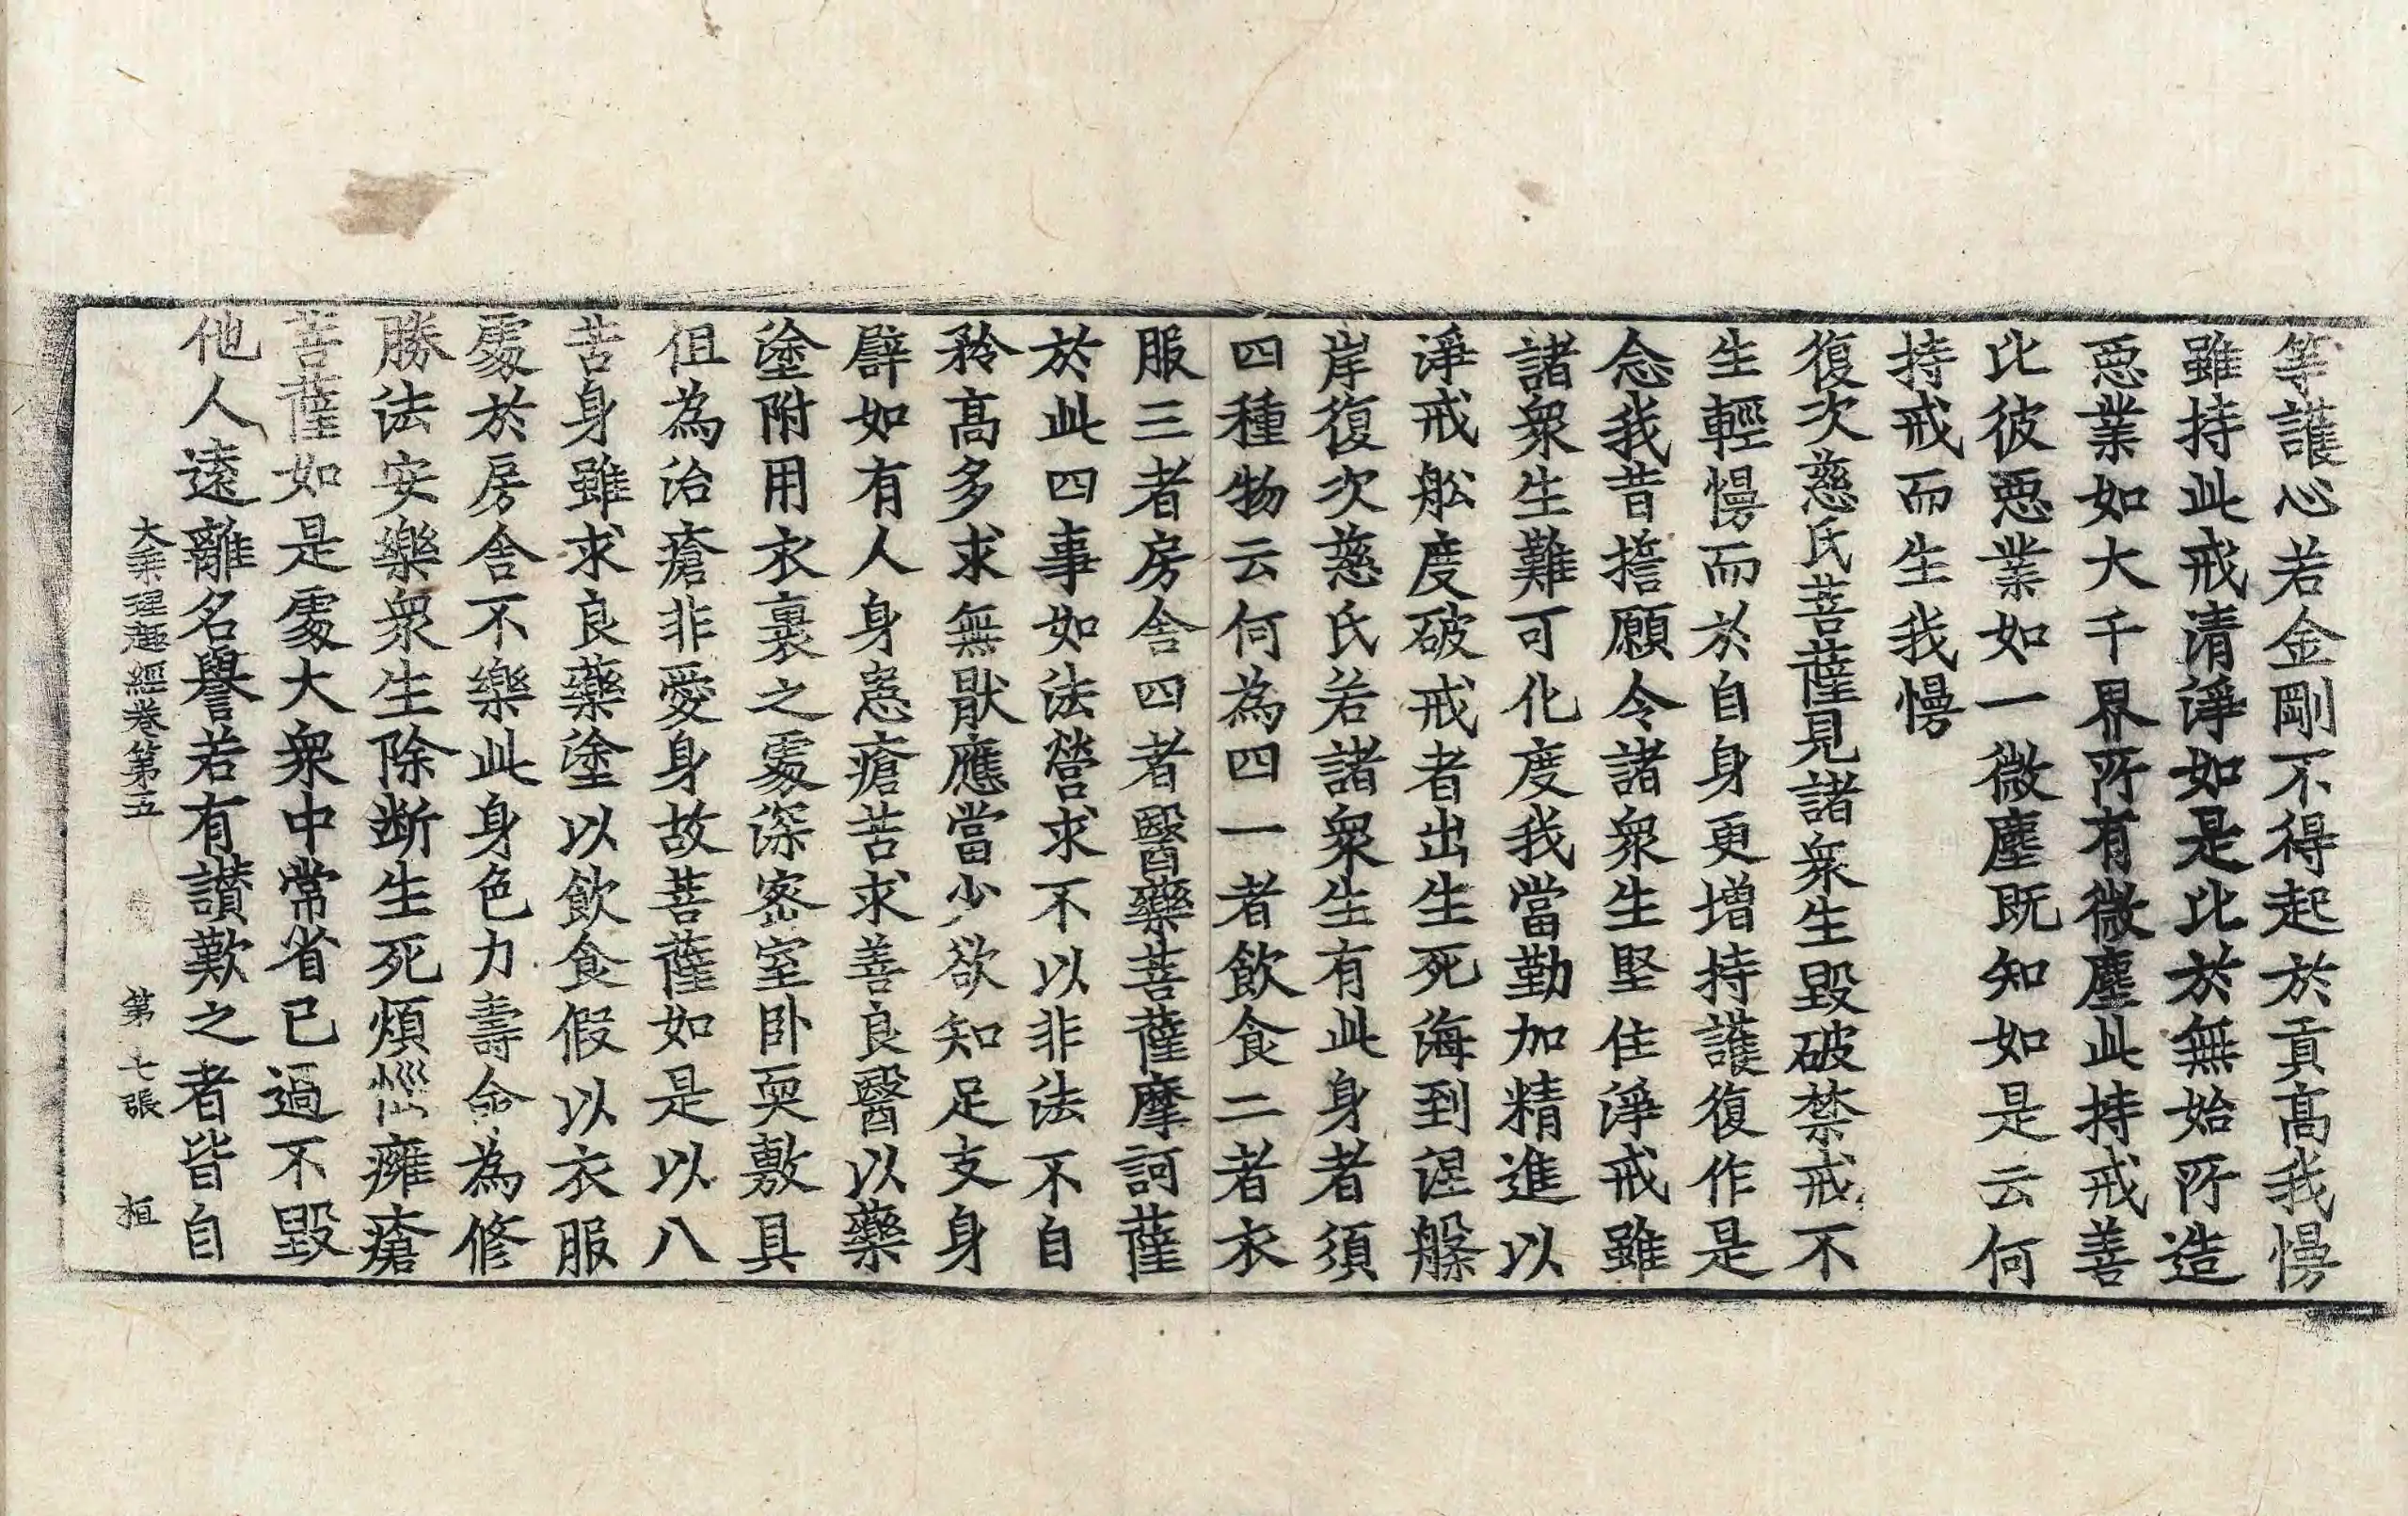 等護心若金剛不得起於貢髙我慢
雖持此戒清淨如是比於無始所造
惡業如大千界所有微塵此持戒善
比彼惡業如一微塵既知如是云何
持戒而生我慢
復次慈氏菩薩見諸衆生毀破禁戒不
生輕慢而於自身更增持護復作是
念我昔擔願令諸衆生堅住淨戒雖
諸衆生難可化度我當勤加精進以
淨戒舩度破戒者出生死海到涅槃
岸復次慈氏若諸衆生有此身者須
四種物云何為四一者飲食二者衣
服三者房舎四者醫藥菩薩摩訶薩
於此四事如法營求不以非法不自
矜髙多求無猒應當少欲知足支身
譬如有人身患瘡苦求善良醫以藥
塗附用衣裹之處深密室卧耎敷具
但為治瘡非愛身故菩薩如是以八
苦身雖求良藥塗以飲食假以衣服
處於房舎不樂此身色力壽命為修
勝法安樂衆生除斷生死煩惱癰瘡
菩薩如是處大衆中常省已過不毀
他人遠離名譽若有讃歎之者皆自
大乗理趣經卷第五 第七張 桓